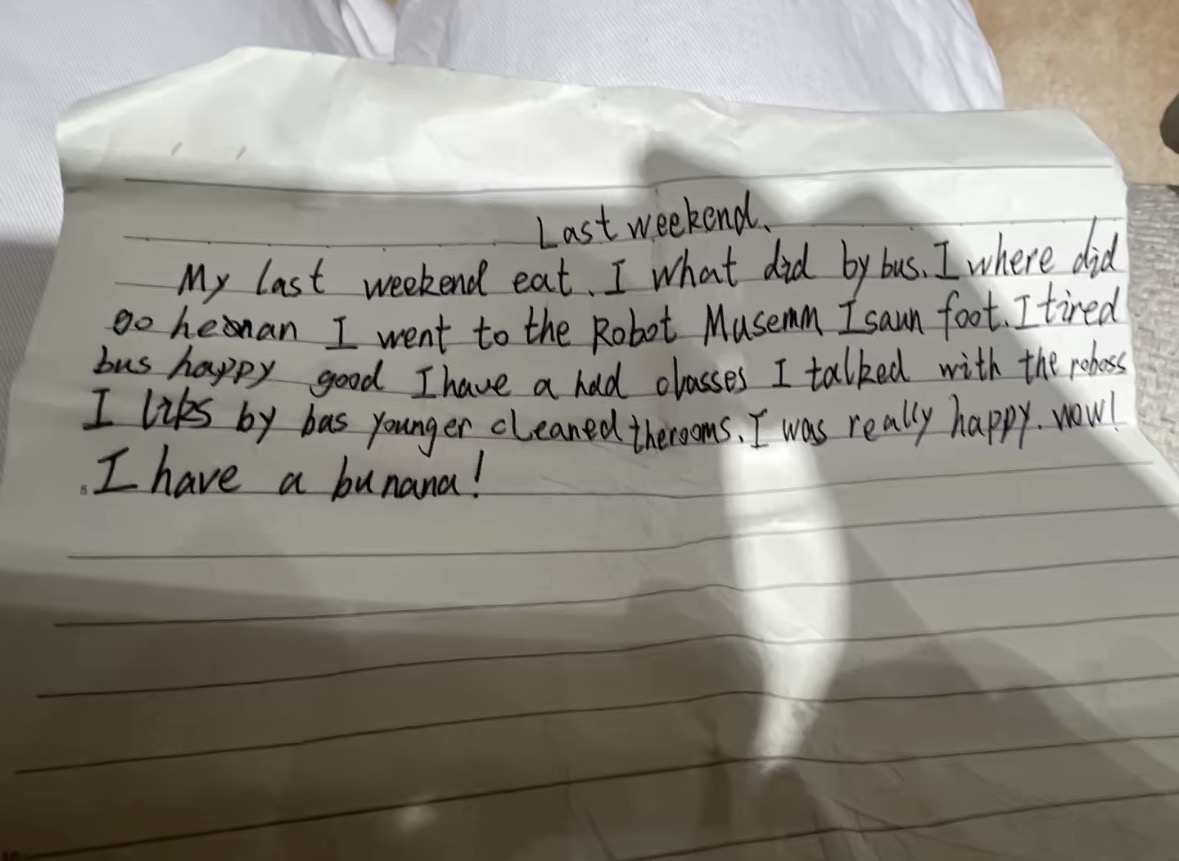 Last weekend.
My last weekend eat. I what did by bus. I where did
go henan I went to the Robot Musemm I saun foot. I tired
bus happy good I have a had classes I talked with the roboss
I likes by bas younger cleaned therooms. I was really happy. wow!
. I have a bunana!